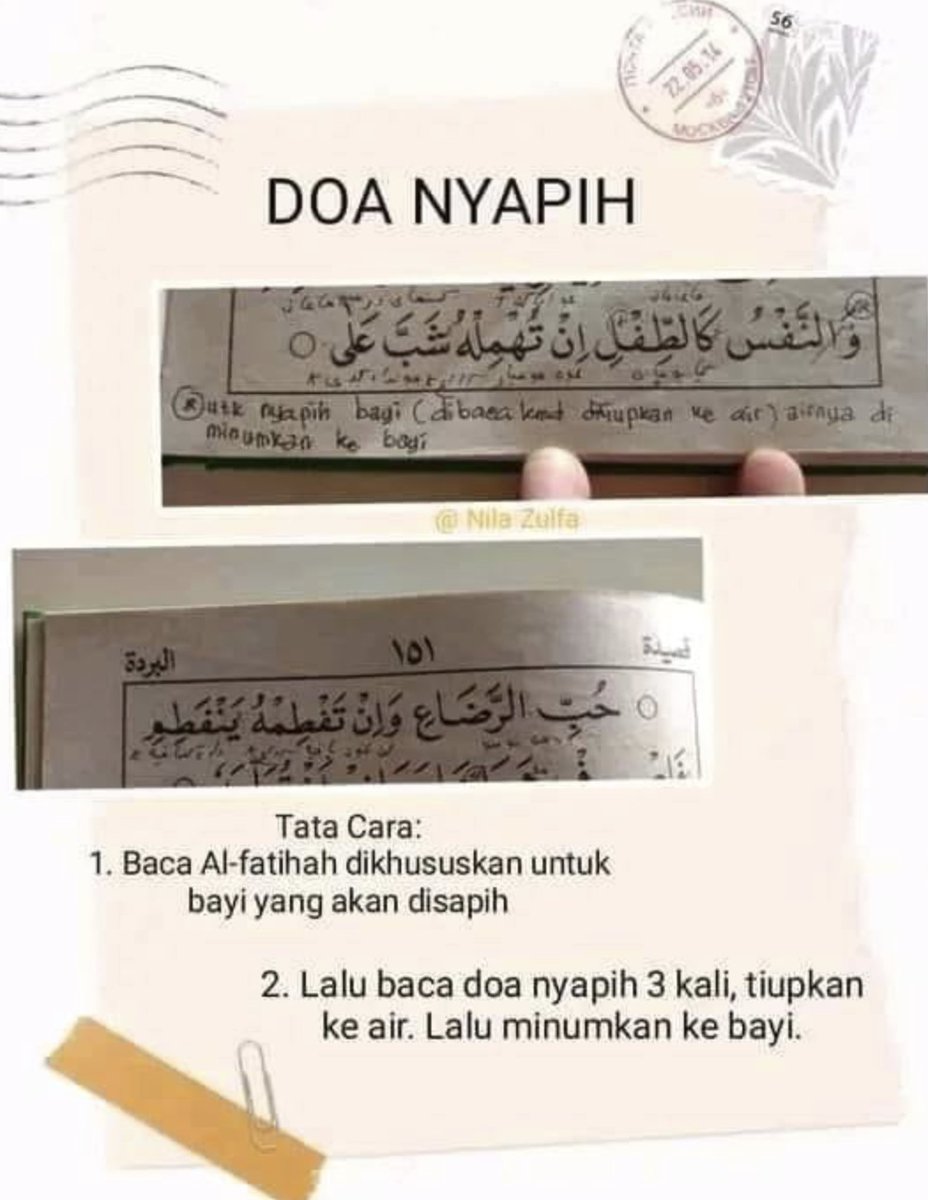 56
22.05.14
DOA NYAPIH
وَالنَّفْسُ كَالطِّفْلِ اِنْ تُهْمِلْهُ شَبَّ عَلٰى
utk nyapih bayi (dibaca kmd ditiupkan ke air) airnya di
minumkan ke bayi
@ Nila Zulfa
قصيدة ١٥١ البردة
حُبِّ الرَّضَاعِ وَاِنْ تَفْطِمْهُ يَنْفَطِمِ
Tata Cara:
1. Baca Al-fatihah dikhususkan untuk
bayi yang akan disapih
2. Lalu baca doa nyapih 3 kali, tiupkan
ke air. Lalu minumkan ke bayi.